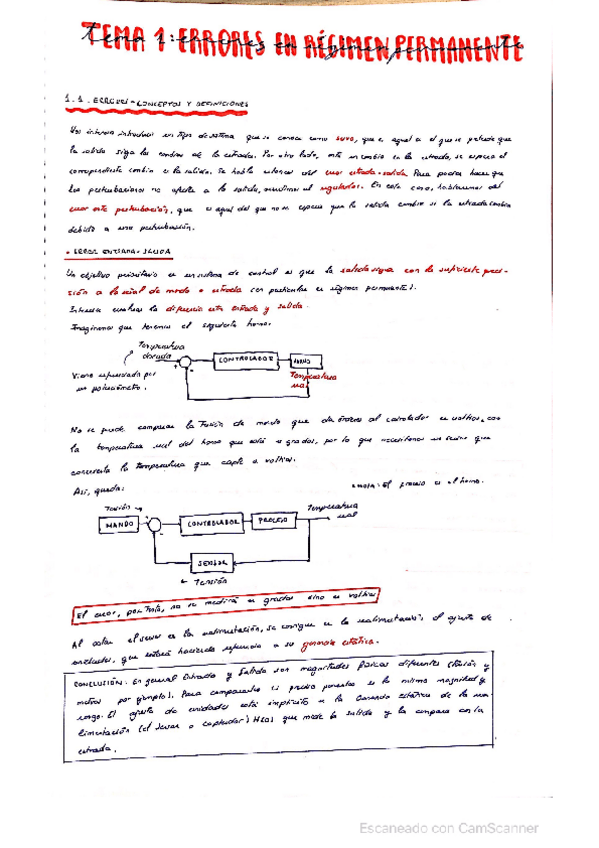 TEMA 1: ERRORES EN RÉGIMEN PERMANENTE
1.1. ERRORES - CONCEPTOS Y DEFINICIONES
Nos interesa introducir un tipo de sistema que se conoce como servo, que es aquel en el que se pretende que
la salida siga los cambios de la entrada. Por otro lado, ante un cambio en la entrada, se espera el
correspondiente cambio en la salida. Se habla entonces del error entrada-salida. Para poder hacer que
las perturbaciones no afecten a la salida, usaremos el regulador. En este caso, hablaremos del
error ante perturbación, que es aquel del que no se espera que la salida cambie si la entrada cambia
debido a una perturbación.
• ERROR ENTRADA-SALIDA
Un objetivo prioritario en un sistema de control es que la salida siga con la suficiente preci-
sión a la señal de mando o entrada (en particular en régimen permanente).
Interesa evaluar la diferencia entre entrada y salida.
Imaginemos que tenemos el siguiente horno:
Temperatura
deseada
+
-
CONTROLADOR
HORNO
Temperatura
real
Viene representada por
un potenciómetro.
No se puede comparar la tensión de mando que da órdenes al controlador en voltios, con
la temperatura real del horno que está en grados, por lo que necesitamos un sensor que
convierta la temperatura que capte a voltios.
Así, queda:
el proceso es el horno.
Tensión
MANDO
CONTROLADOR
PROCESO
Temperatura
real
SENSOR
← Tensión
El error, por tanto, no se medirá en grados sino en voltios
Al estar el sensor en la realimentación, se consigue en la realimentación el ajuste de
unidades, que estará haciendo referencia a su ganancia estática.
CONCLUSIÓN: En general Entrada y Salida son magnitudes físicas diferentes (tensión y
metros por ejemplo). Para compararlas es preciso ponerlas en la misma magnitud y
rango. El ajuste de unidades está implícito en la Ganancia estática de la rea-
limentación (el sensor o captador) H(s) que mide la salida y la compara con la
entrada.
Escaneado con CamScanner